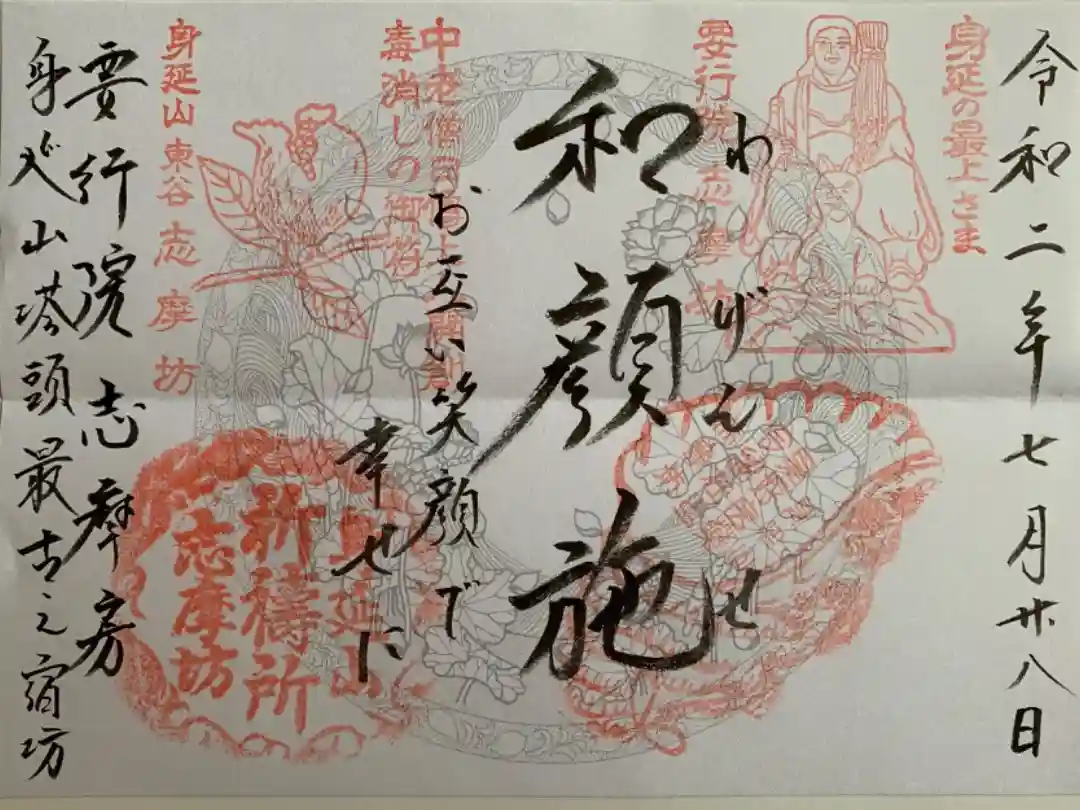 令和二年七月廿八日
身延の最上さま
要行院志摩坊
わげんせ
和顔施
お互い笑顔で
幸せに
中老僧日傳上人開創
毒消しの御符
身延山東谷志摩坊
身延山
祈禱所
志摩坊
要行院 志摩房
身延山塔頭最古之宿坊